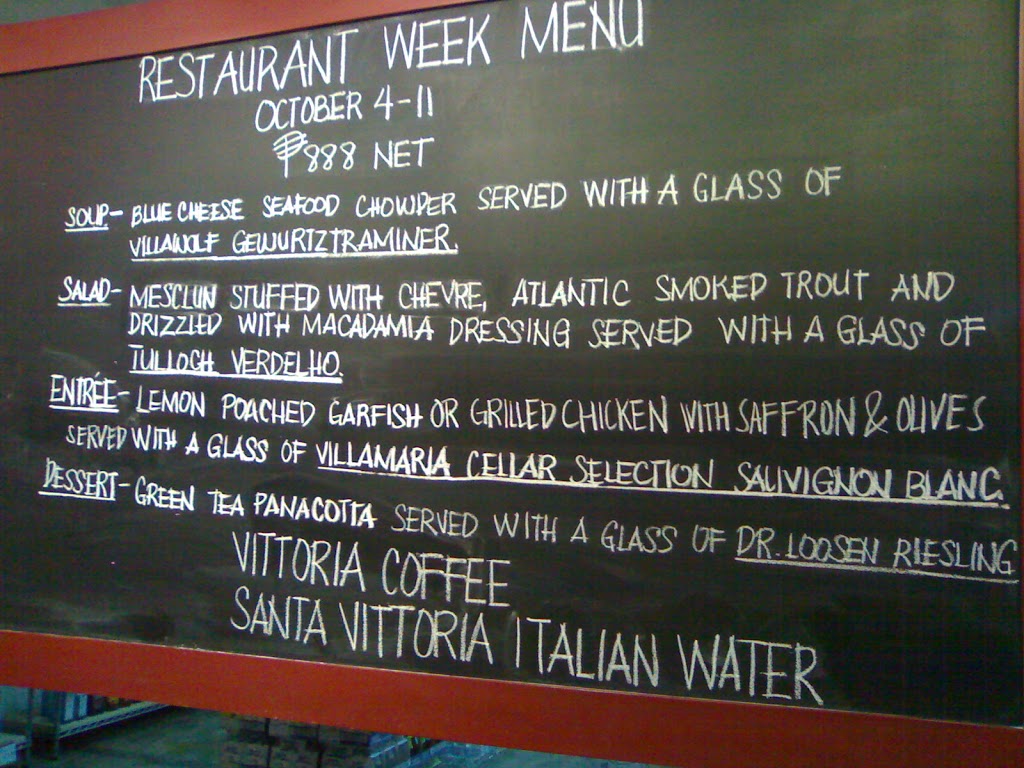 RESTAURANT WEEK MENU
OCTOBER 4-11
₱888 NET
SOUP- BLUE CHEESE SEAFOOD CHOWDER SERVED WITH A GLASS OF
VILLAWOLF GEWURTZTRAMINER.
SALAD- MESCLUN STUFFED WITH CHEVRE, ATLANTIC SMOKED TROUT AND
DRIZZLED WITH MACADAMIA DRESSING SERVED WITH A GLASS OF
TULLOCH VERDELHO.
ENTRÉE- LEMON POACHED GARFISH OR GRILLED CHICKEN WITH SAFFRON & OLIVES
SERVED WITH A GLASS OF VILLAMARIA CELLAR SELECTION SAUVIGNON BLANC.
DESSERT- GREEN TEA PANACOTTA SERVED WITH A GLASS OF DR. LOOSEN RIESLING
VITTORIA COFFEE
SANTA VITTORIA ITALIAN WATER